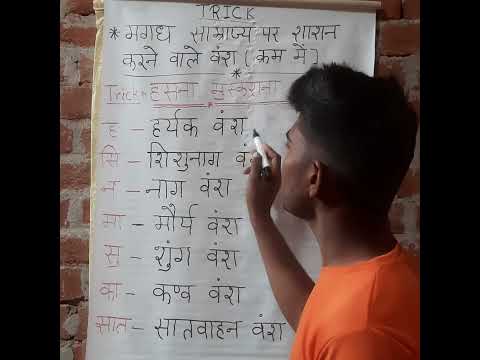 TRICK
* मगध साम्राज्य पर शासन
करने वाले वंश ( क्रम में )
Trick → हसना * मुस्कुराना
ह – हर्यक वंश
सि – शिशुनाग वंश
न – नाग वंश
मा – मौर्य वंश
सु – शुंग वंश
का – कण्व वंश
सात – सातवाहन वंश